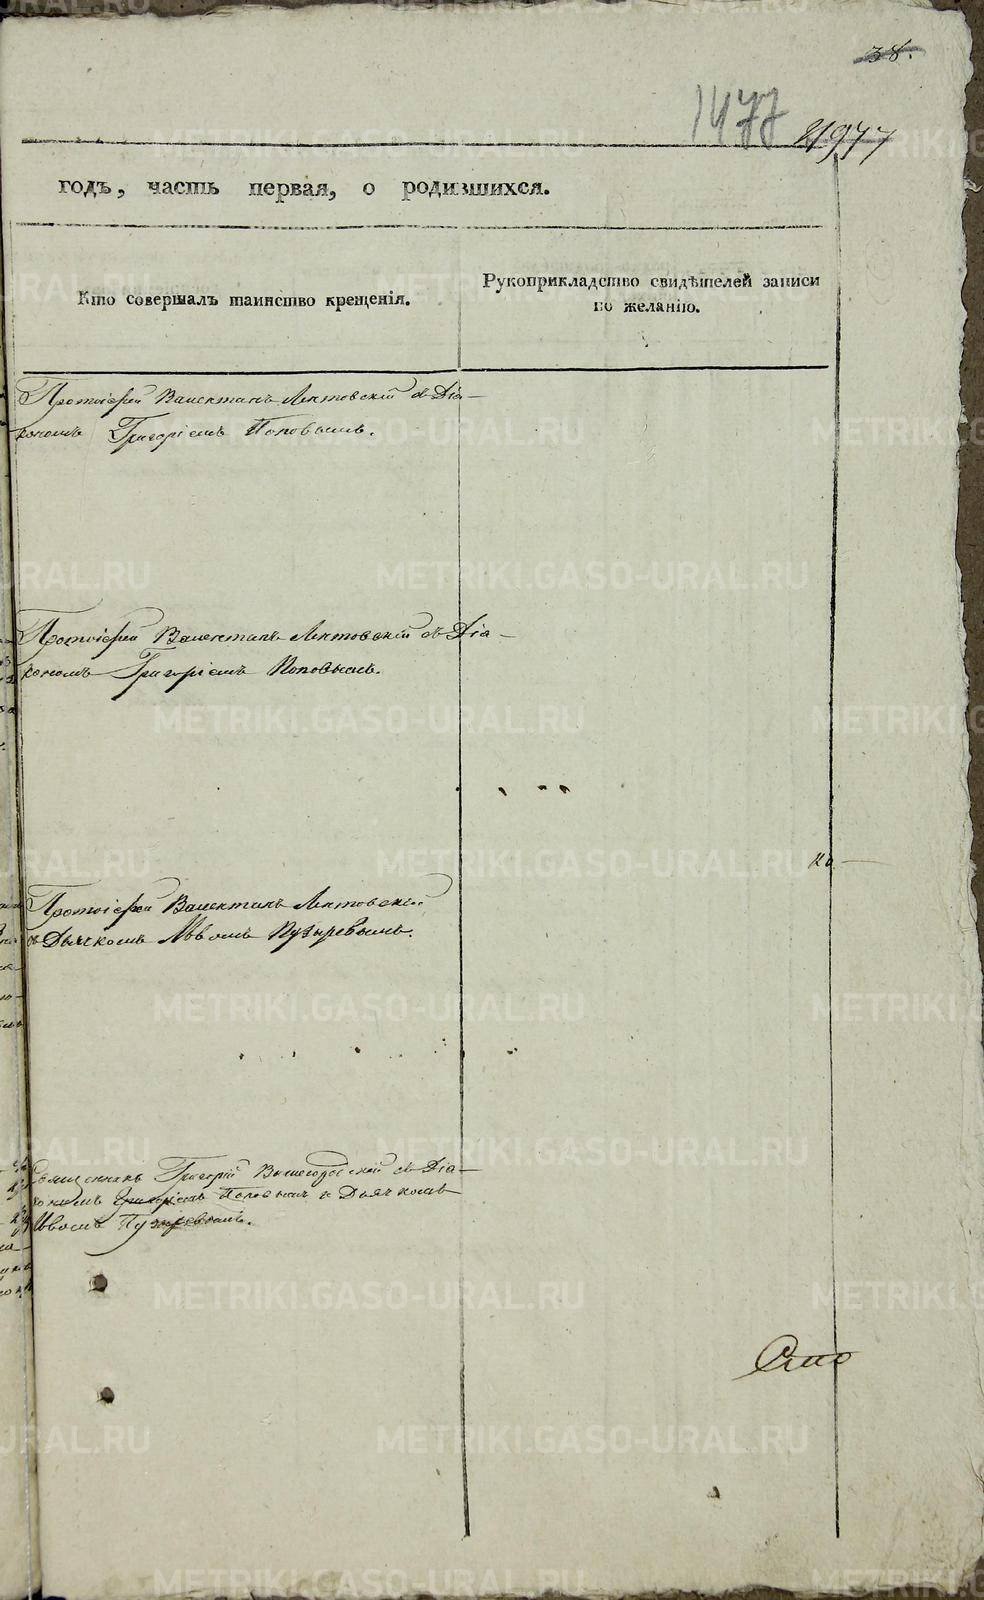 38.
1477 21977
годъ, часть первая, о родившихся.
Кто совершалъ таинство крещенія.
Рукоприкладство свидѣтелей записи
по желанію.
Протоіерей Валентинъ Лятовскій съ Діа-
кономъ Григоріемъ Поповымъ.
Протоіерей Валентинъ Лятовскій съ Діа-
кономъ Григоріемъ Поповымъ.
Протоіерей Валентинъ Лятовскій
съ Дьячкомъ Львомъ Пузыревымъ.
Священникъ Григорій съ Діа-
кономъ Григоріемъ Поповымъ и Дьячкомъ
Львомъ Пузыревымъ.
METRIKI.GASO-URAL.RU